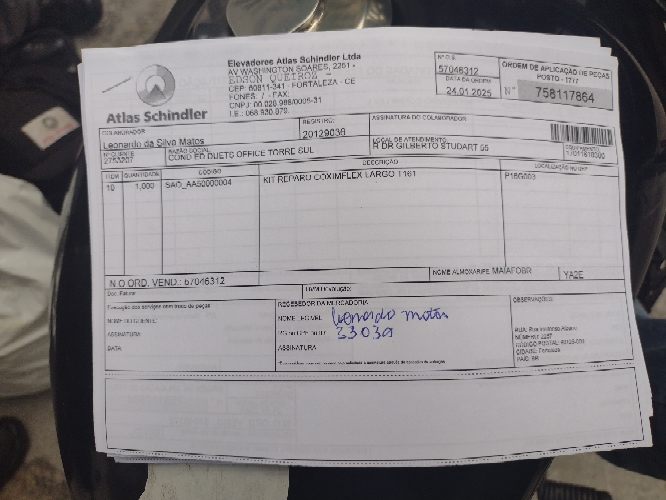 Atlas Schindler
Elevadores Atlas Schindler Ltda
AV WASHINGTON SOARES, 2261 -
EDSON QUEIROZ -
CEP: 60811-341 - FORTALEZA - CE
FONES: / - FAX:
CNPJ: 00.028.986/0005-31
I.E.: 068 930 878.
Nº O.S.
57046312
DATA DA ORDEM
24.01.2025
ORDEM DE APLICAÇÃO DE PEÇAS
POSTO - 1777
Nº 758117864
COLABORADOR
Leonardo da Silva Matos
REGISTRO:
20129036
ASSINATURA DO COLABORADOR
Nº CLIENTE
2753207
RAZÃO SOCIAL
COND ED DUETS OFFICE TORRE SUL
LOCAL DE ATENDIMENTO:
R DR GILBERTO STUDART 55
EQUIPAMENTO
ITEM QUANTIDADE CÓDIGO DESCRIÇÃO
10 1,000 SAO_AA50000004 KIT REPARO COXIMFLEX LARGO T161 P18G003
N.O ORD. VEND.: 57046312
NOME ALMOXARIFE: MAIAFOBR
YA2E
NOME DO CLIENTE:
ASSINATURA:
DATA
RECEBEDOR DA MERCADORIA
NOME LEGÍVEL Leonardo matos
33039
ASSINATURA
OBSERVAÇÕES:
CIDADE: Fortaleza
PAÍS: BR